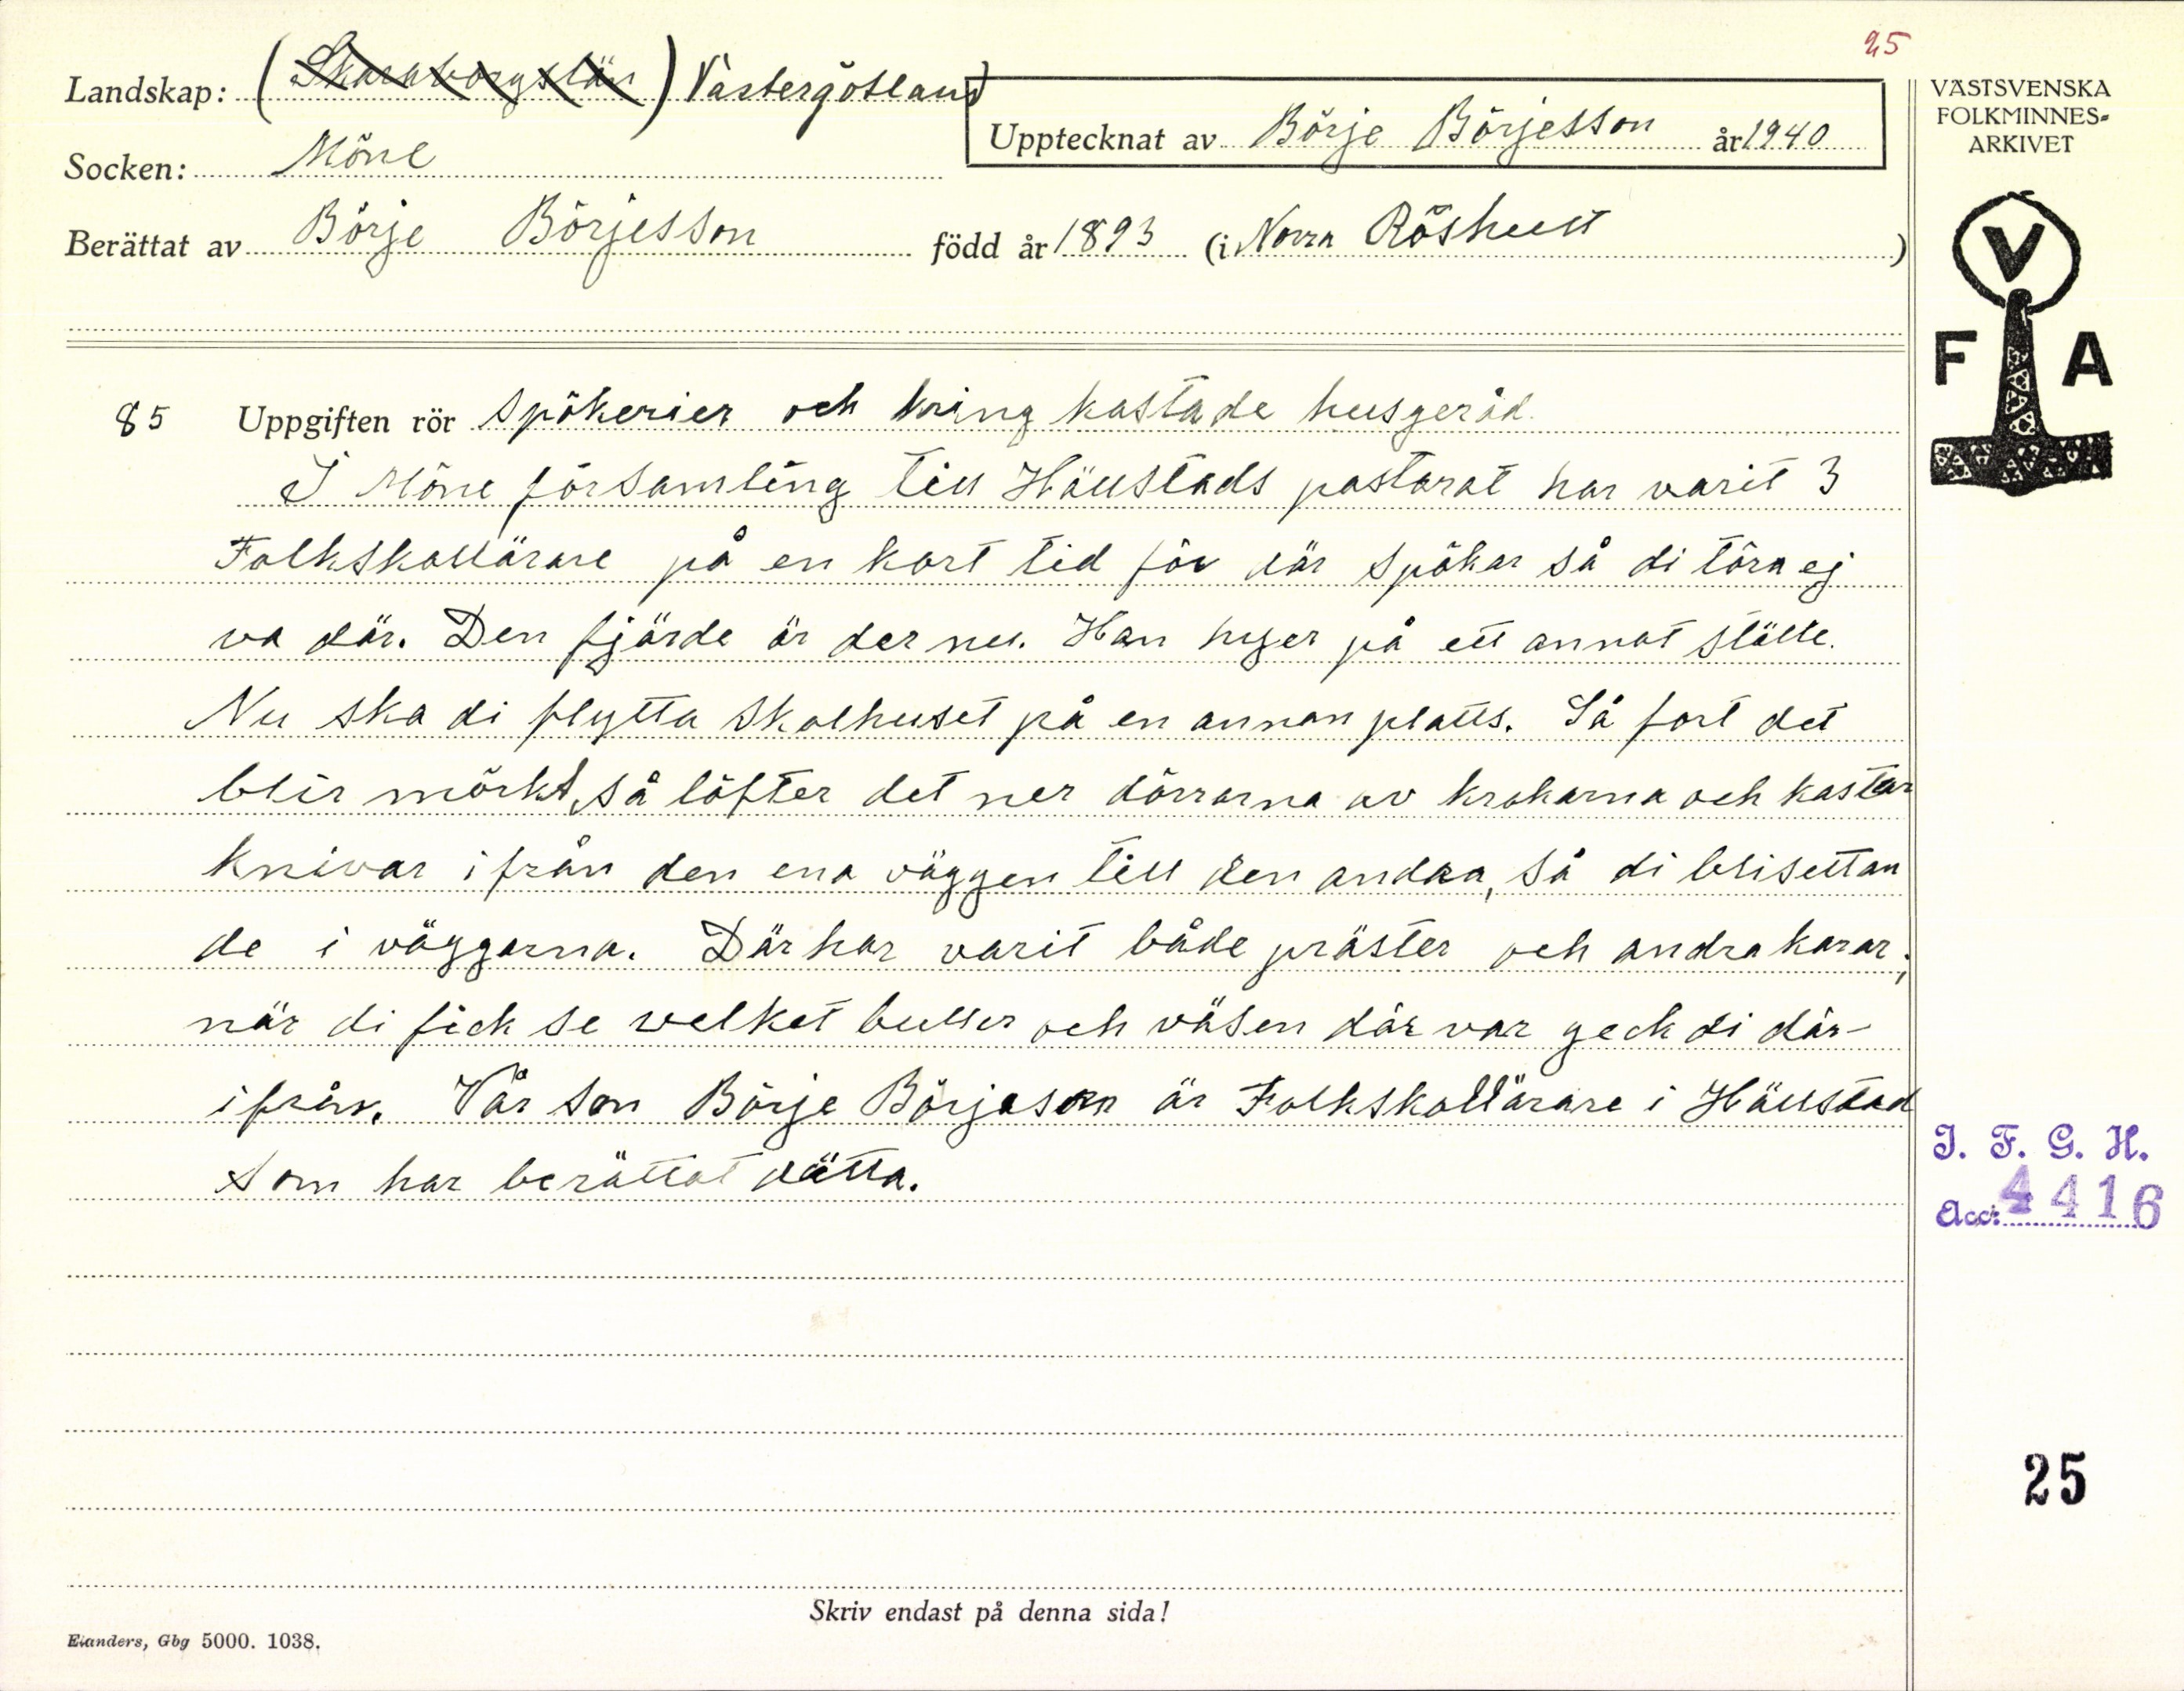 25
Landskap: (Skaraborgslän) Västergötland
Upptecknat av Börje Börjesson år 1940
VÄSTSVENSKA
FOLKMINNES-
ARKIVET
Socken: Möne
Berättat av Börje Börjesson född år 1893 (i Norra Röshult)
V
F A
85 Uppgiften rör spökerier och kring kastade husgeråd.
I Möne församling till Hällstads pastorat har varit 3
Folkskollärare på en kort tid för där spökar så di törn ej
va där. Den fjärde är der nu. Han hyer på ett annat ställe.
Nu ska di flytta skolhuset på en annan platts. Så fort det
blir mörkt, så löfter det ner dörrarna av krokarna och kastar
knivar ifrån den ena väggen till den andra, så di blisettan
de i väggarna. Där har varit både präster och andra karar;
när di fick se velket buller och väsen där var geck di där-
ifrån. Vår son Börje Börjeson är Folkskollärare i Hällstad
som har berättat dätta.
I. F. G. H.
Acc: 4416
25
Skriv endast på denna sida!
Elanders, Gbg 5000. 1038.